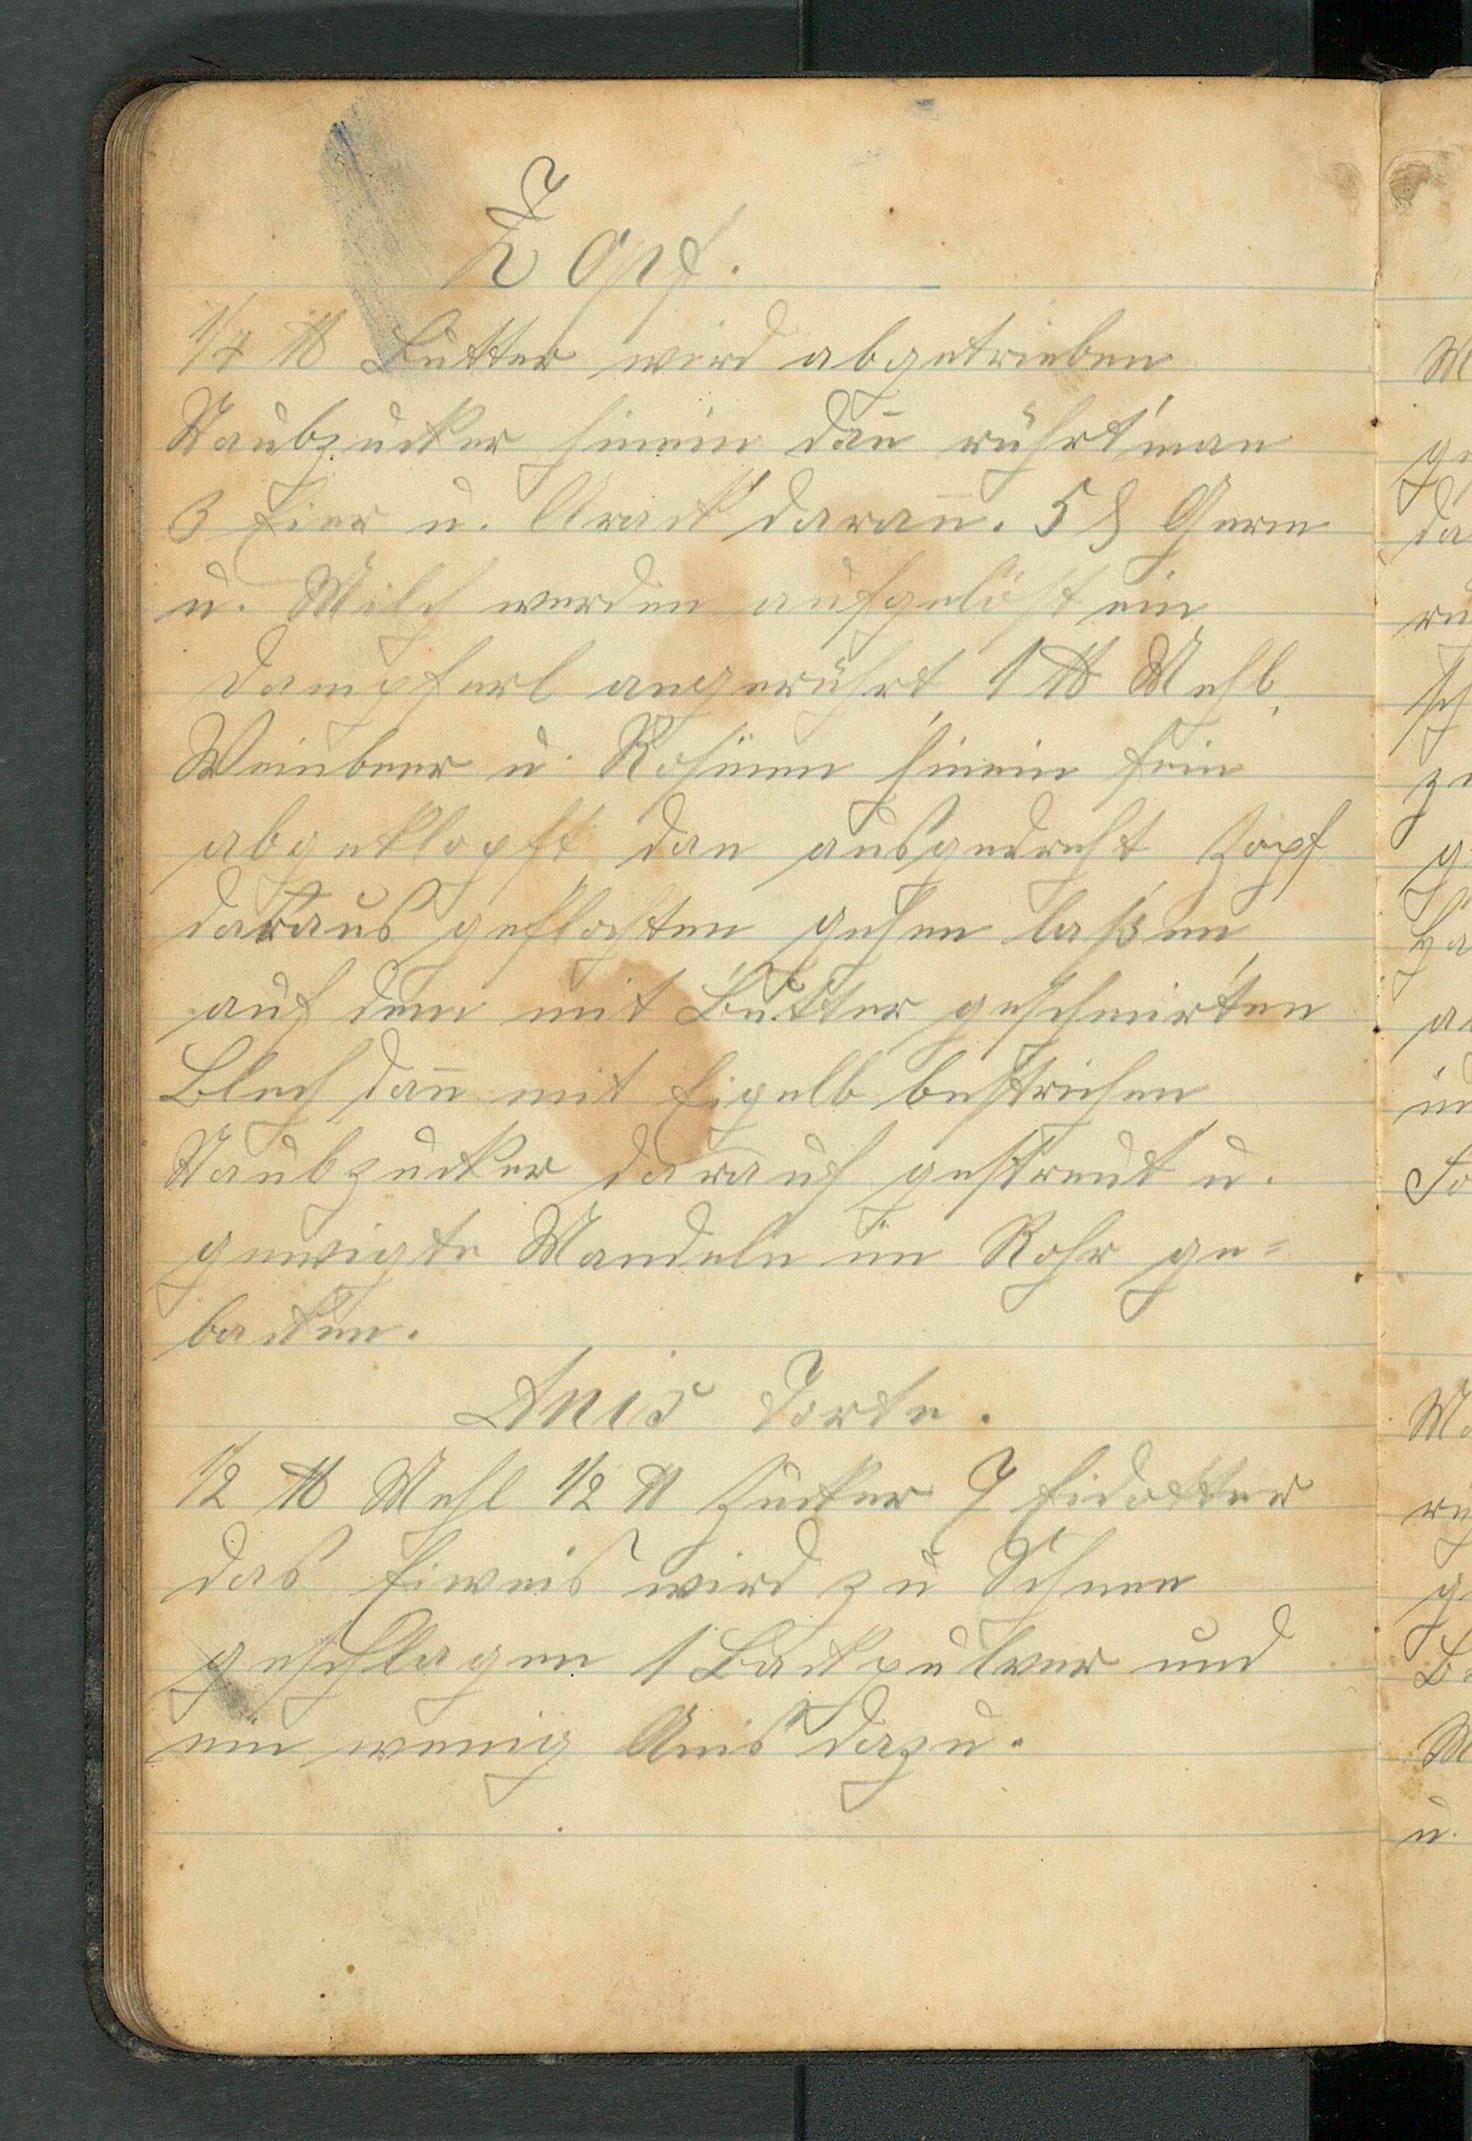 Zopf.
1/4 ℔ Butter wird abgetrieben
Staubzucker hinein dan̄ rührt man
3 Eier u. Arack daran̄. 5 ₰ Germ
u. Milch werden aufgelößt ein
Dampferl angerührt 1 ℔ Mehl,
Weinbeer u. Rosinen hinein fein
abgeklopft dan ausgedreht Zopf
daraus geflochten gehen laßen
auf dem mit Butter geschmirten
Blech dan̄ mit Eigelb bestrichen
Staubzucker darauf gestreut u.
gewigte Mandeln im Rohr ge=
backen.
Anis Torte.
1/2 ℔ Mehl 1/2 ℔ Zucker 7 Eidotter
das Eiweis wird zu Schnee
geschlagen 1 Backpulver und
ein wenig Anis dazu.